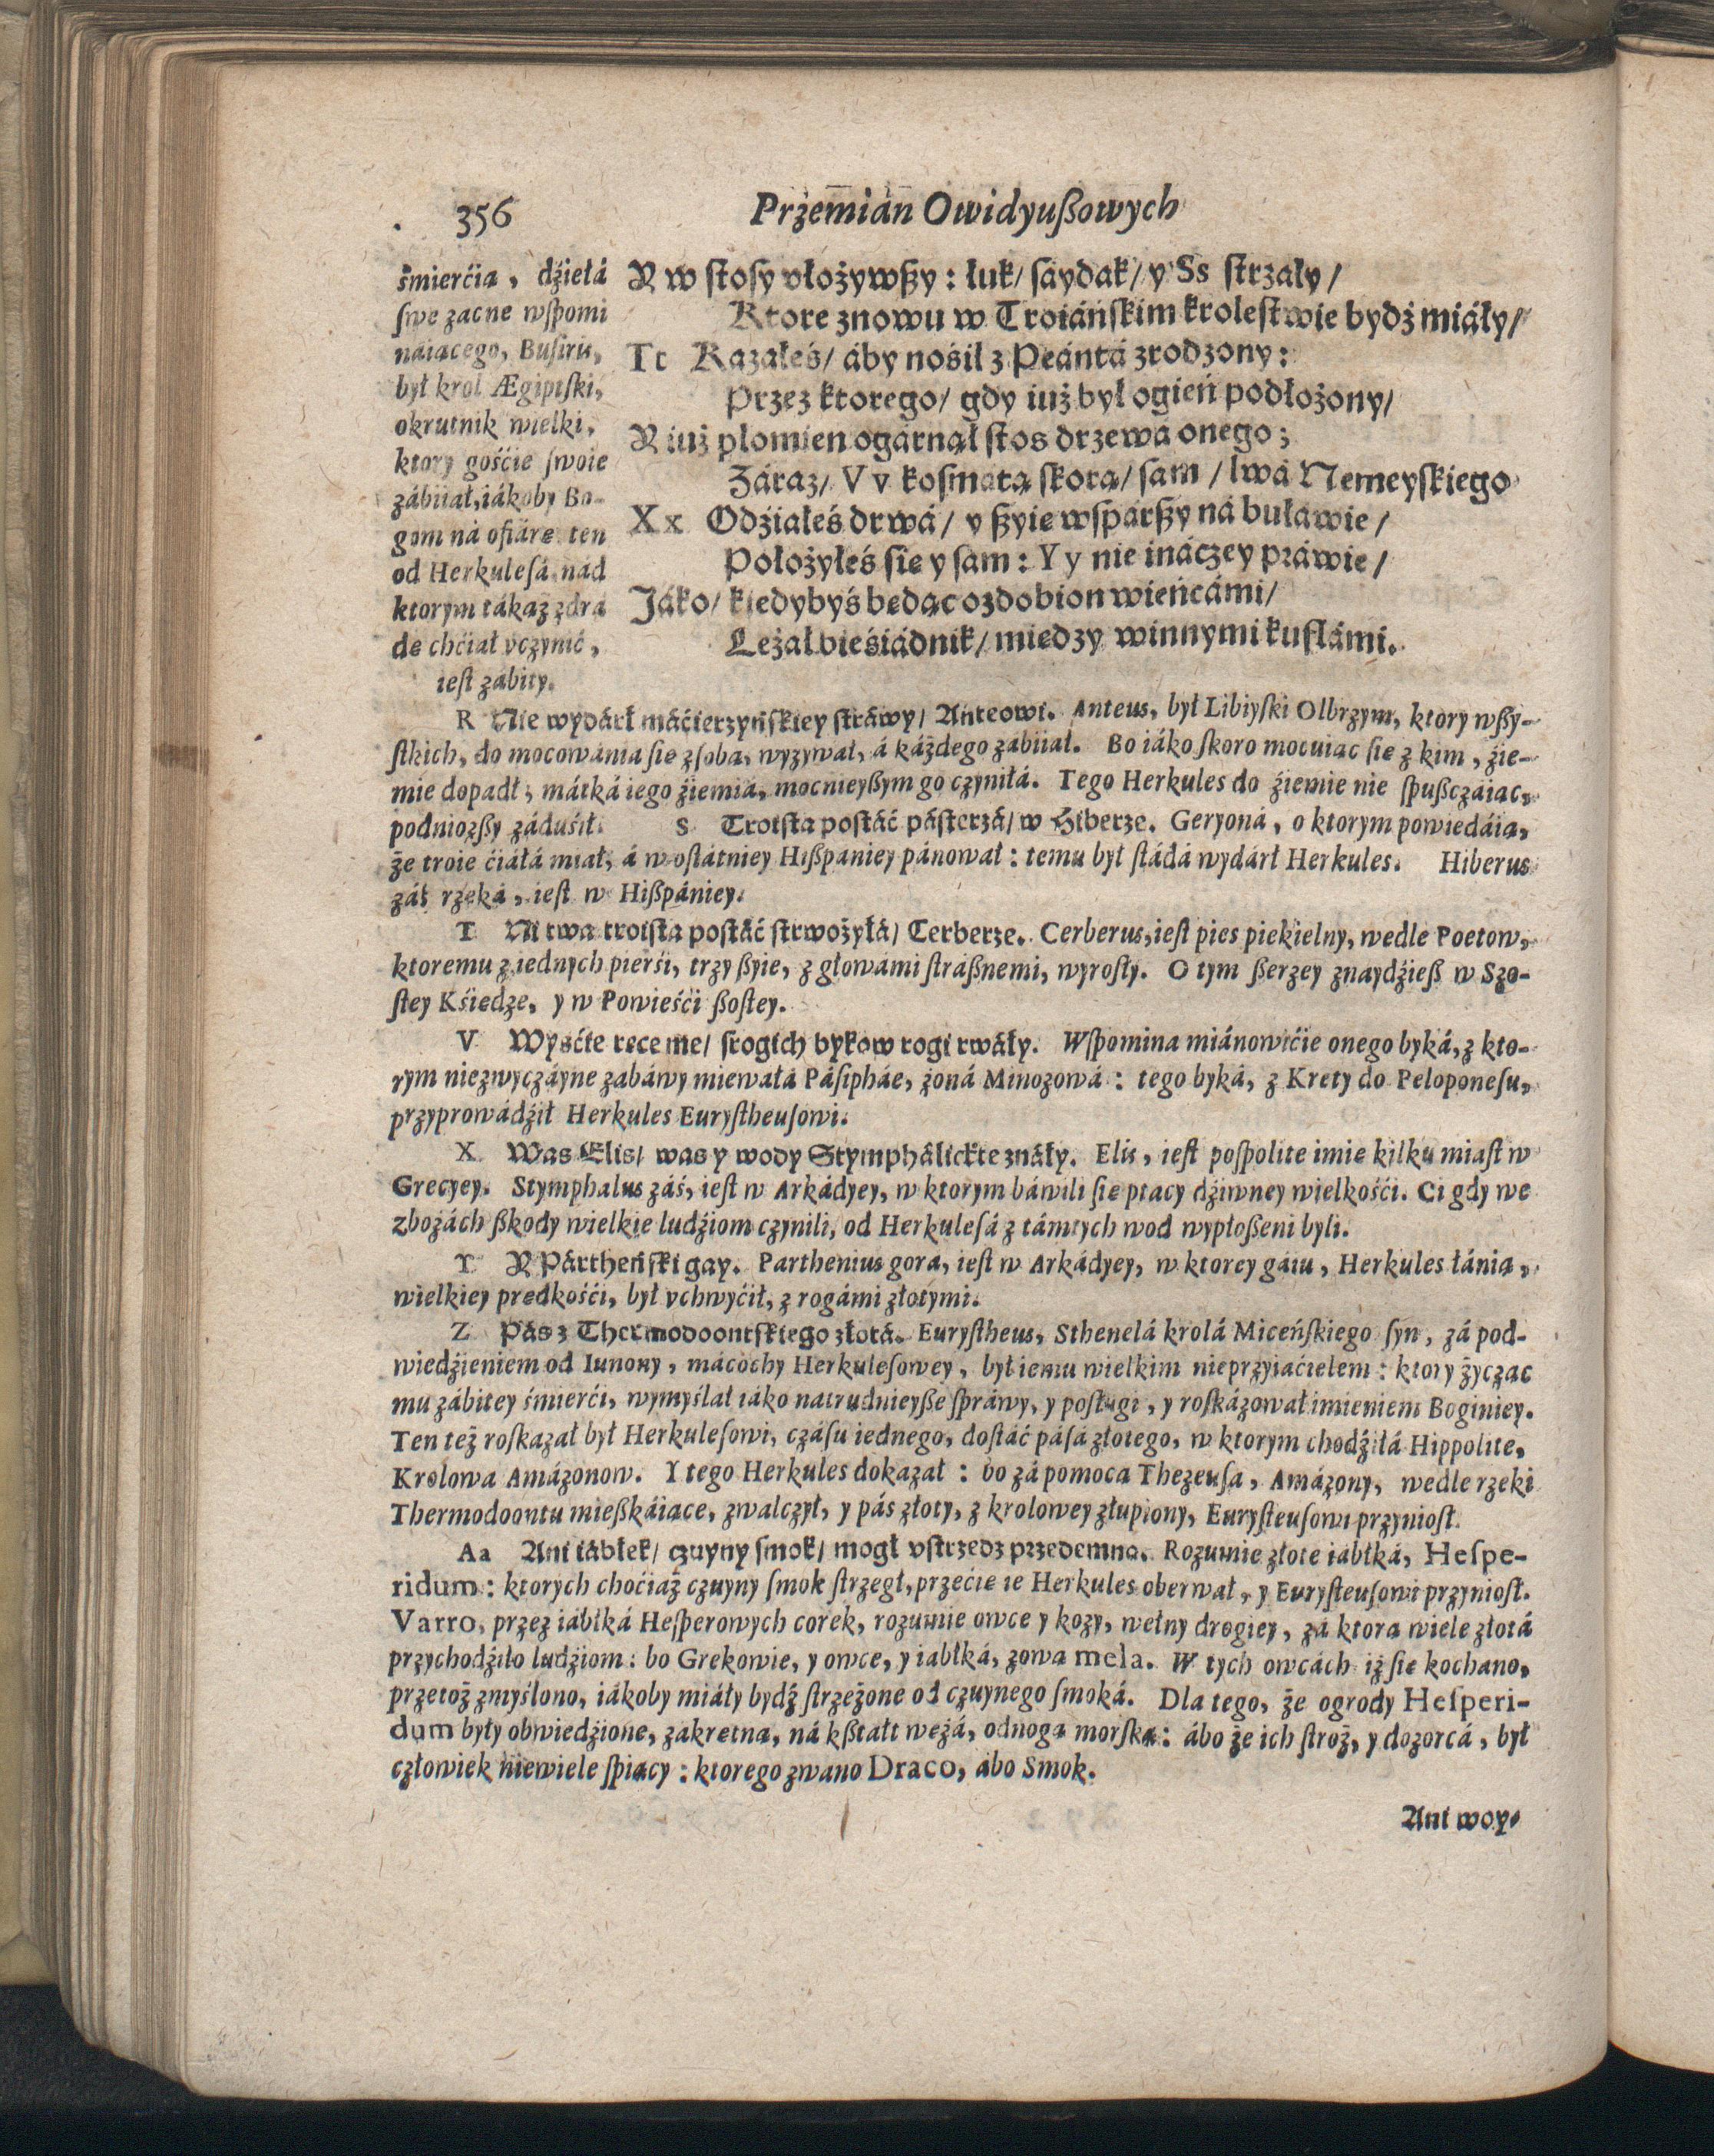 356
Przemián Owidyuszowych
śmierćia, dźiełá
swe zacne wspomi
náiącego, Busiris,
był krol Ægiptski,
okrutnik wielki,
ktory gośćie swoie
zábiiał, iákoby Bo-
gom ná ofiárę ten
od Herkulesá nád
ktorym tákaż zdrá
dę chćiał vczynić,
iest zábity.
Y w stosy vłożywszy: łuk/ saydak/ y Ss strzały/
Ktore znowu w Troiáńskim krolestwie bydź miáły/
Tt Kazałeś/ áby nośił z Peántá zrodzony:
Przez ktorego/ gdy iuż był ogień podłożony/
Y iuż płomień ogárnął stos drzewá onego;
Záraz/ Vv kosmatą skorą/ sam/ lwá Nemeyskiego
Xx Odźiałeś drwá/ y szyię wspárszy ná buławie/
Położyłeś się y sam: Yy nie ináczey práwie/
Jáko/ kiedybyś będąc ozdobion wieńcámi/
Leżał bieśiádnik/ między winnymi kuflámi.
R Nie wydárł máćierzyńskiey stráwy/ Anteowi. Anteus, był Libiyski Olbrzym, ktory wszy-
stkich, do mocowánia się z sobą, wyzywał, á káżdego zábiiał. Bo iáko skoro mocuiąc się z kim, źie-
mie dopadł, mátká iego źiemiá, mocnieyszym go czyniłá. Tego Herkules do źiemie nie spuszczáiąc,
podniozszy záduśił. S Troista postáć pásterzá/ w Hiberze. Geryoná, o ktorym powiedáią,
że troie ćiáłá miał, á w ostátniey Hiszpániey pánował: temu był stádá wydárł Herkules. Hiberus
záś rzeká, iest w Hiszpániey.
T Ni twa troista postáć strwożyłá/ Cerberze. Cerberus, iest pies piekielny, wedle Poetow,
ktoremu z iednych pierśi, trzy szyie, z głowámi strásznemi, wyrosły. O tym szerzey znaydźiesz w Szo-
stey Kśiędze, y w Powieśći szostey.
V Wyśćie ręce me/ srogich bykow rogi rwáły. Wspomina miánowićie onego byká, z kto-
rym niezwyczáyne zabáwy miewałá Pásipháe, żoná Minozowá: tego byká, z Krety do Peloponesu,
przyprowádźił Herkules Eurystheusowi.
X Was Elis/ was y wody Stymphálickie znáły. Elis, iest pospolite imię kilku miast w
Grecyey. Stymphalus záś, iest w Arkádyey, w ktorym báwili się ptacy dźiwney wielkośći. Ci gdy we
zbożách szkody wielkie ludźiom czynili, od Herkulesá z támtych wod wypłoszeni byli.
Y Y Párthenski gay. Parthenius gora, iest w Arkádyey, w ktorey gáiu, Herkules łánią,
wielkiey prędkośći, był vchwyćił, z rogámi złotymi.
Z Pás z Thermodoontskiego złotá. Eurystheus, Sthenelá krolá Miceńskiego syn, zá pod-
wiedźieniem od Iunony, mácochy Herkulesowey, był iemu wielkim nieprzyiaćielem: ktory życząc
mu zábitey śmierći, wymyślał iáko natrudnieysze spráwy, y posługi, y roskázował imieniem Boginiey.
Ten też roskazał był Herkulesowi, czásu iednego, dostáć pásá złotego, w ktorym chodźiłá Hippolite,
Krolowa Amázonow. Y tego Herkules dokazał: bo zá pomocą Thezeusa, Amázony, wedle rzeki
Thermodoontu mieszkáiące, zwalczył, y pás złoty, z krolowey złupiony, Eurysteusowi przyniosł.
Aa Ani iábłek/ czuyny smok/ mogł vstrzedz przedemną. Rozumie złote iábłká, Hespe-
ridum: ktorych choćiaż czuyny smok strzegł, przećię ie Herkules oberwał, y Eurysteusowi przyniosł.
Varro, przez iábłká Hesperowych corek, rozumie owce y kozy, wełny drogiey, zá ktorą wiele złotá
przychodźiło ludźiom: bo Grekowie, y owce, y iabłká, zową mela. W tych owcách iż się kochano,
przetoż zmyślono, iákoby miáły bydź strzeżone od czuynego smoká. Dla tego, że ogrody Hesperi-
dum były obwiedźione, zakrętną, ná kształt wężá, odnogą morską: ábo że ich stroż, y dozorcá, był
człowiek niewiele spiący: ktorego zwano Draco, ábo Smok.
Ani woy-